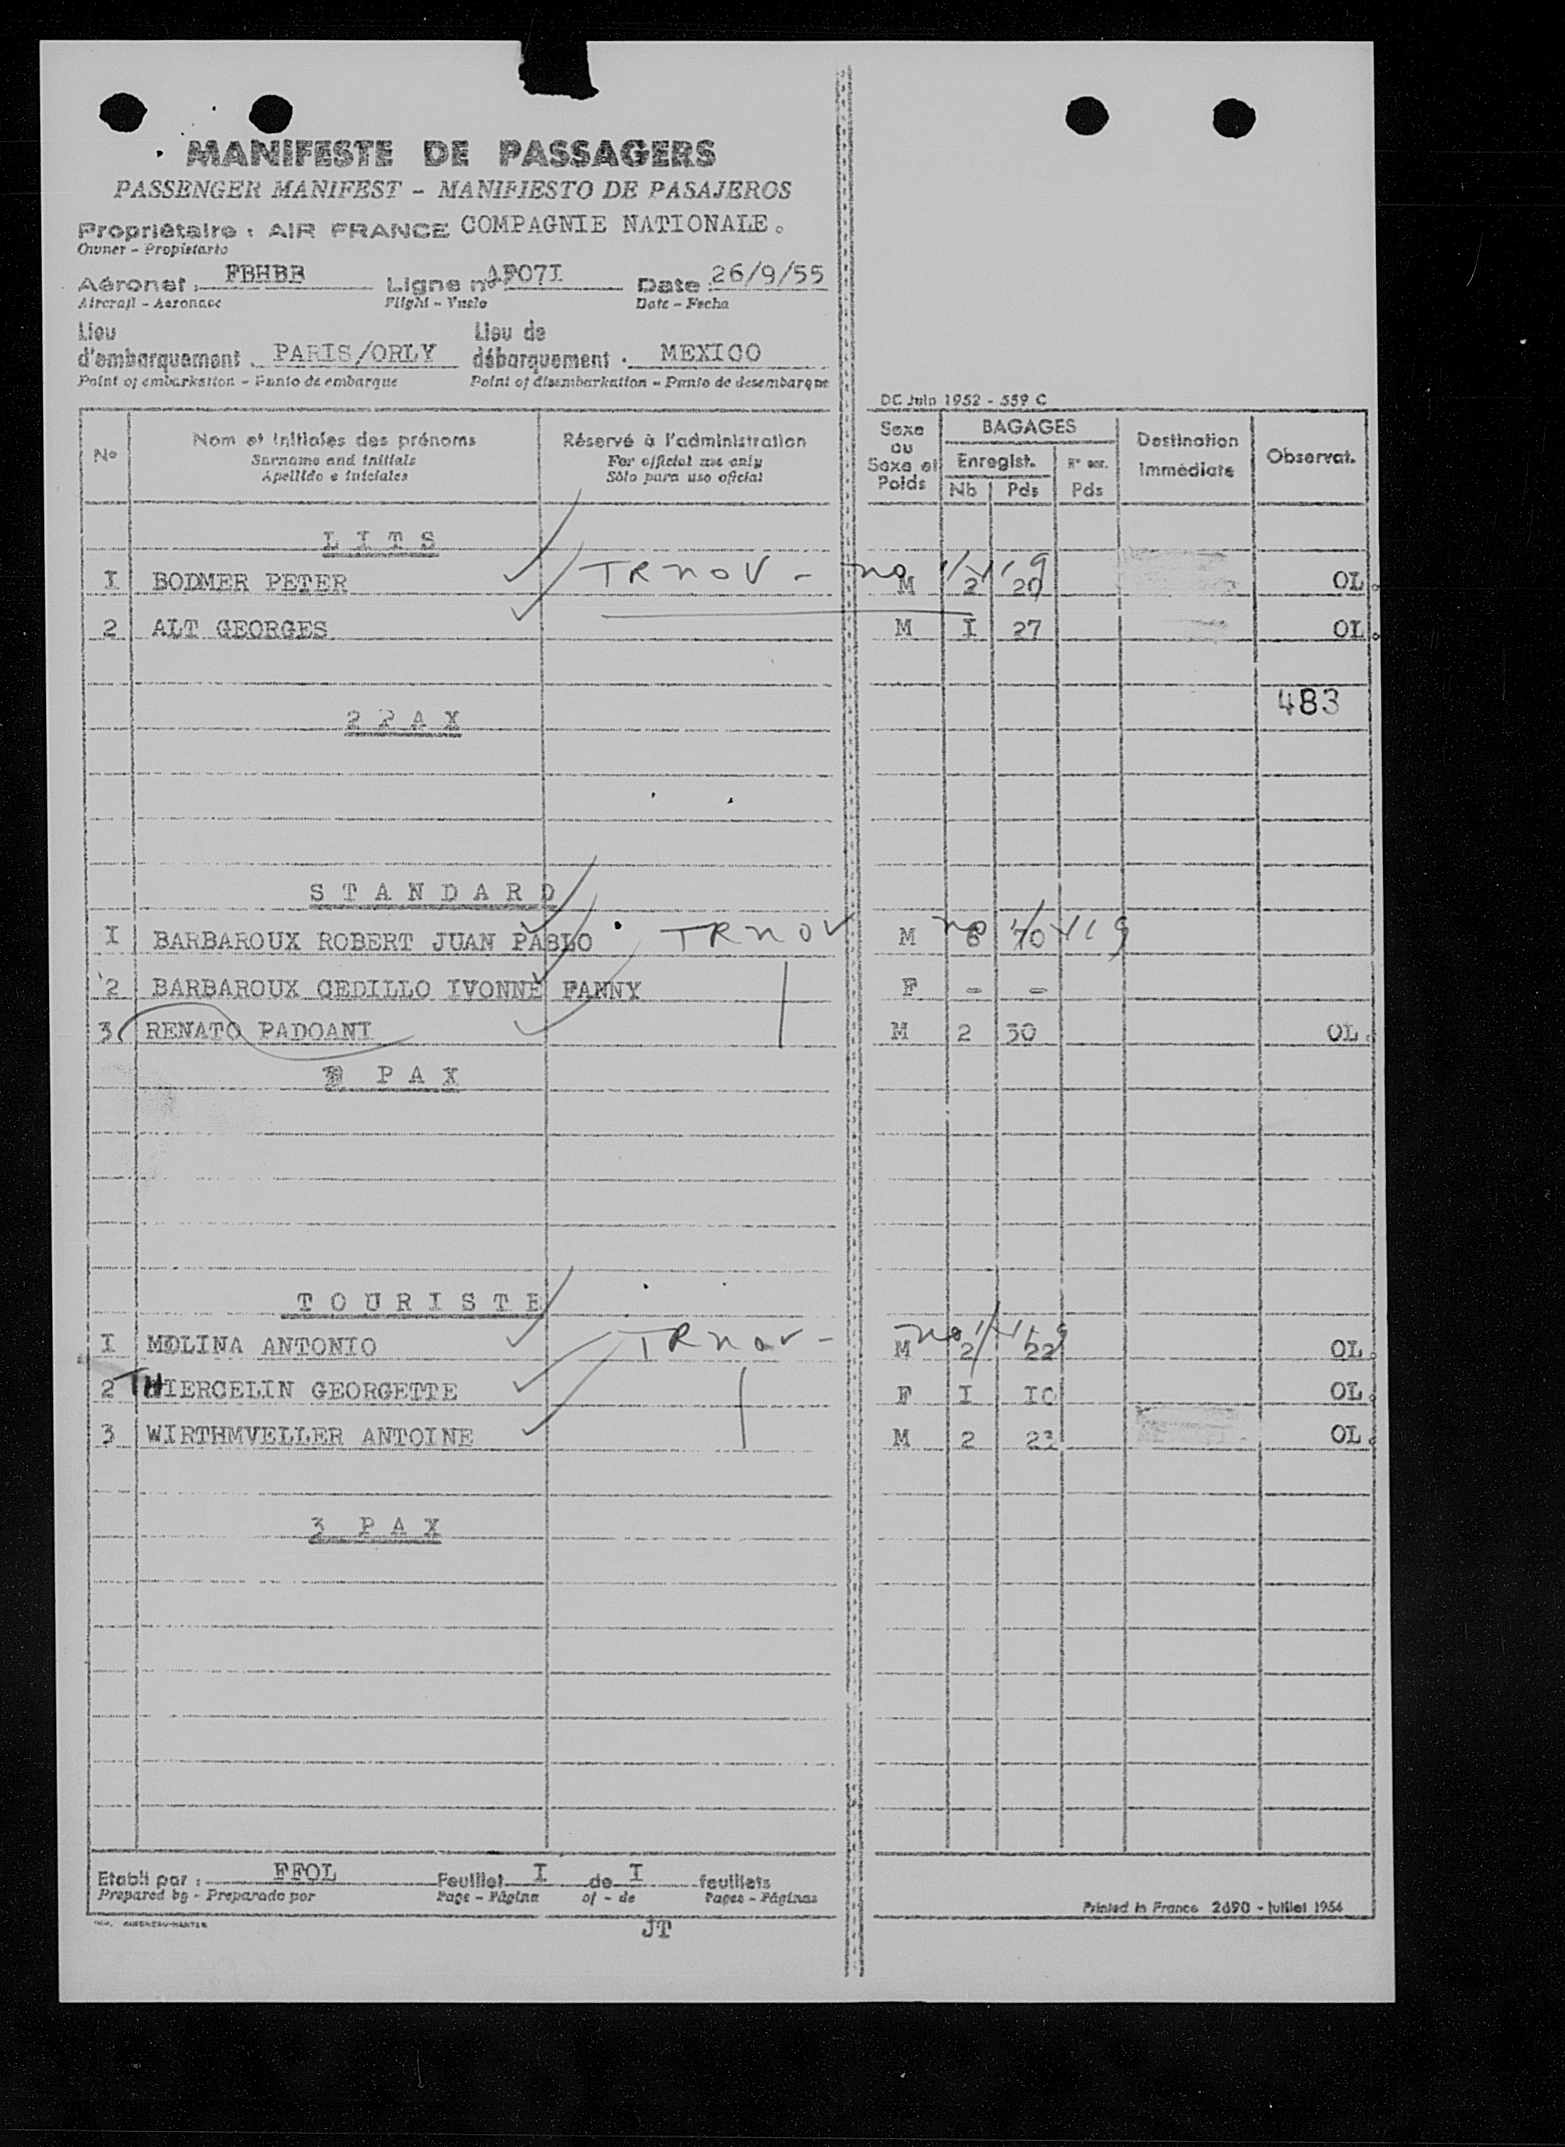 MANIFESTE DE PASSAGERS
PASSENGER MANIFEST - MANIFIESTO DE PASAJEROS
Propriétaire : AIR FRANCE COMPAGNIE NATIONALE.
Owner - Propietario
Aéronef : FBHBB Ligne n° AF07I Date 26/9/55
Aircraft - Aeronave Flight - Vuelo Date - Fecha
Lieu d'embarquement . PARIS/ORLY Lieu de débarquement . MEXICO
Point of embarkation - Punto de embarque Point of disembarkation - Punto de desembarque
DC Juin 1952 - 559 C
N° Nom et initiales des prénoms Réservé à l'administration Sexe ou Sexe et Poids BAGAGES Destination Immédiate Observat.
Surname and initials For official use only Enregist.
Apellido e iniciales Sólo para uso oficial Nb Pds Pds
L I T S
I BODMER PETER TRNOV - no M 2 20 OL.
2 ALT GEORGES M I 27 OL.
483
2 P A X
S T A N D A R D
I BARBAROUX ROBERT JUAN PABLO TRNOV M no 70
2 BARBAROUX CEDILLO IVONNE FANNY F - -
3 RENATO PADOANI M 2 30 OL.
P A X
T O U R I S T E
I MOLINA ANTONIO TRNOV - M no 2 22 OL.
2 THIERCELIN GEORGETTE F I I0 OL.
3 WIRTHMVELLER ANTOINE M 2 23 OL.
3 P A X
Etabli par : FFOL Feuillet I de I feuillets
Prepared by - Preparado por Page - Página of - de Pages - Páginas
Printed in France 2690 - Juillet 1954
JT